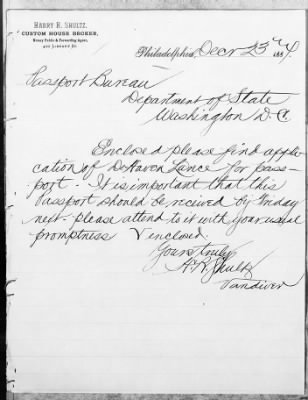 HARRY R. SHULTZ,
CUSTOM HOUSE BROKER,
Notary Public & Forwarding Agent,
Philadelphia, Decr 23rd 1884
Passport Bureau
Department of State
Washington D.C.
Enclosed please find appli-
cation of DeHaven Lance for pass-
port. It is important that this
Passport should be recieved by Friday
next. please attend to it with your usual
promptness V enclosed.
Yours truly
H.R. Shultz
Vandiver